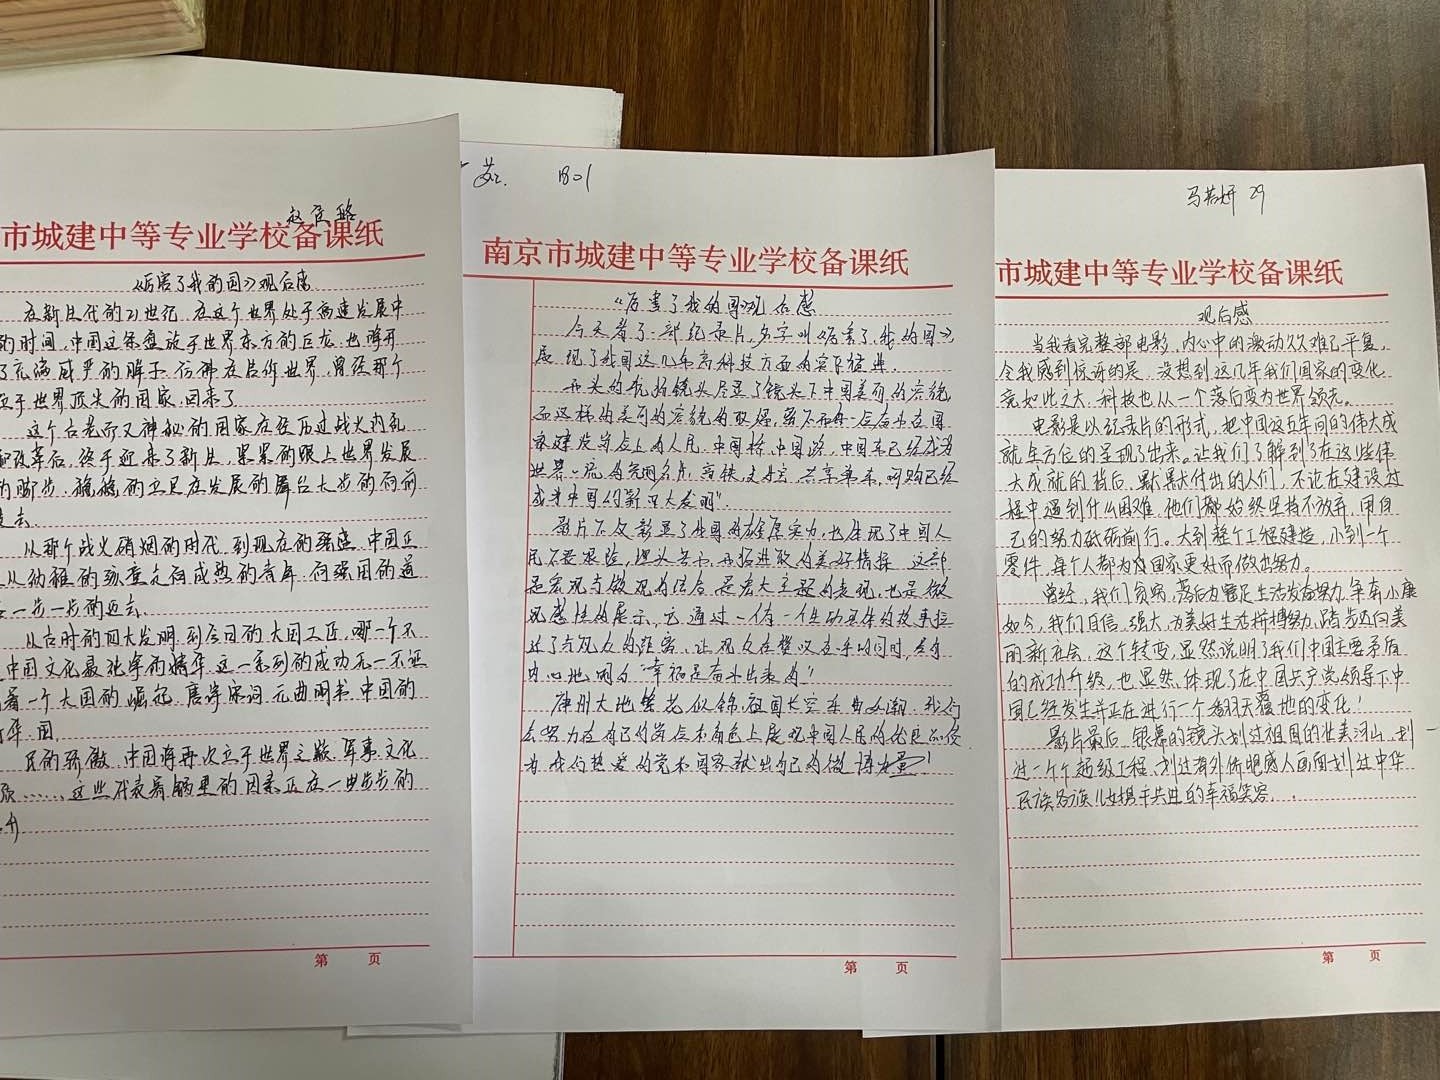 赵
市城建中等专业学校备课纸
《厉害了我的国》观后感
在新时代的21世纪，在这个世界处于高速发展中
的时间，中国这条盘旋于世界东方的巨龙，也睁开
了充满威严的眸子，仿佛在告诉世界，曾经那个
立于世界顶尖的国家，回来了
这个古老而又神秘的国家在经历过战火内乱
改革后，终于迎来了新生，紧紧的跟上世界发展
的脚步，稳稳的立足在发展的舞台大步的向前
走去.
从那个战火硝烟的时代，到现在的强盛，中国正
从幼稚的孩童走向成熟的青年，向强国的道
一步一步的迈去.
从古时的四大发明，到今日的大国工匠，哪一个不
中国文化最化学的精华，这一系列的成功无一不证
着一个大国的崛起，唐诗宋词，元曲明书，中国的
国
民的骄傲，中国将再次立于世界之巅，军事，文化
……，这些代表着的因素正在一步步的
升
第 页
苏. 1801
南京市城建中等专业学校备课纸
《厉害了我的国》观后感
今天看了一部纪录片，名字叫《厉害了，我的国》
展现了我国这几年高科技方面的
开头的航拍镜头尽显了镜头下中国美丽的容貌，
而这样的美丽的容貌的取得，离不开每一位奋斗在国
家建设岗位上的人民，中国桥，中国路，中国车已经成为
世界一流的亮丽名片，高铁，支付宝，共享单车，网购已经
成为中国的"新四大发明".
影片不仅彰显了我国的雄厚实力，也体现了中国人
民不畏艰险，埋头苦干，开拓进取的美好情操. 这部
是宏观与微观的结合，是宏大主题的表现，也是微
观感性的展示，它通过一个个生动具体的故事拉
近了与观众的距离，让观众在赞叹之余的同时，会
内心地明白"幸福是奋斗出来的"！
神州大地繁花似锦，祖国长空乐曲如潮. 我们
会努力在自己的岗位本色上展现中国人民的优良品质
为我们热爱的党和国家献出自己的微薄力量！
第 页
马若妍 29
市城建中等专业学校备课纸
观后感
当我看完整部电影，内心中的激动久久难已平复，
令我感到惊讶的是，没想到这几年我们国家的变化
竟如此之大，科技也从一个落后变为世界领先。
电影是以纪录片的形式，把中国这五年间的伟大成
就全方位的呈现了出来。让我们了解到了在这些伟
大成就的背后，默默付出的人们，不论在建设过
程中遇到什么困难，他们都始终坚持不放弃，用自
己的努力砥砺前行。大到整个工程建造，小到一个
零件，每个人都为国家更好而做出努力。
曾经，我们贫病，落后为满足生活发奋努力，争奔小康
如今，我们自信，强大，为美好生活拼搏努力，踏步迈向美
丽新社会，这个转变，显然说明了我们中国主要矛盾
的成功升级，也显然体现了在中国共产党领导下中
国已经发生并正在进行一个翻天覆地的变化！
影片最后，银幕的镜头划过祖国的壮美河山，划
过一个个超级工程，划过海外侨胞感人画面划过中华
民族各族儿女携手共进的幸福笑容...
第 页